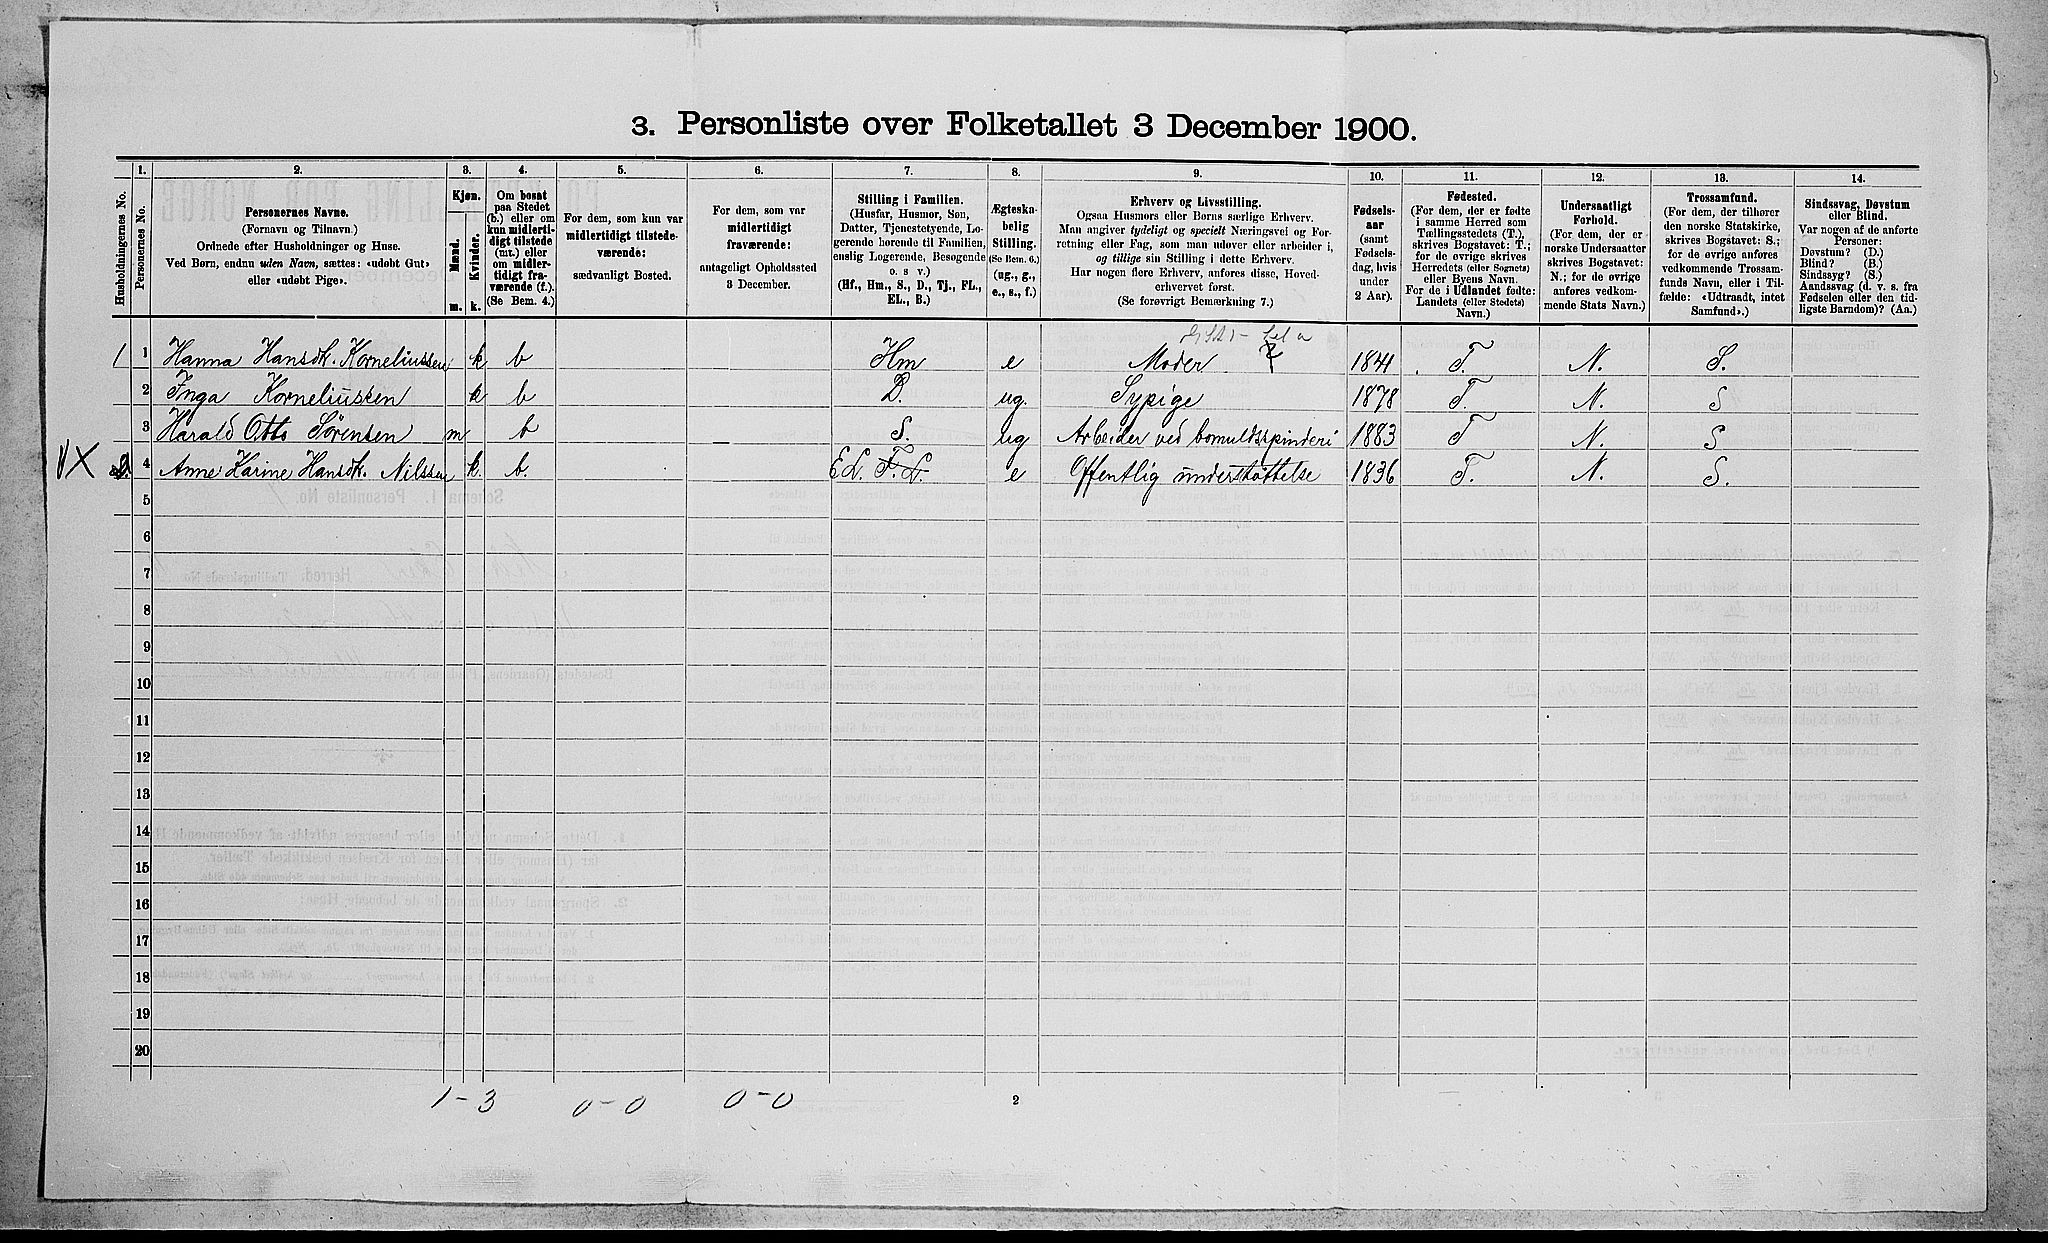 3. Personliste over Folketallet 3 December 1900.
Husholdningernes No.
1.
Personernes No.
2.
Personernes Navne.
(Fornavn og Tilnavn.)
Ordnede efter Husholdninger og Huse.
Ved Børn, endnu uden Navn, sættes: «udøbt Gut»
eller «udøbt Pige».
3.
Kjøn.
Mænd.
Kvinder.
m. k.
4.
Om bosat
paa Stedet
(b.) eller om
kun midlerti-
digt tilstede
(mt.) eller
om midler-
tidigt fra-
værende (f.).
(Se Bem. 4.)
5.
For dem, som kun var
midlertidigt tilstede-
værende:
sædvanligt Bosted.
6.
For dem, som var
midlertidigt
fraværende:
antageligt Opholdssted
3 December.
7.
Stilling i Familien.
(Husfar, Husmor, Søn,
Datter, Tjenestetyende, Lo-
gerende hørende til Familien,
enslig Logerende, Besøgende
o. s v.)
(Hf., Hm., S., D., Tj., FL.,
EL., B.)
8.
Ægteska-
belig
Stilling.
(Se Bem. 6.)
(ug., g.,
e., s., f.)
9.
Erhverv og Livsstilling.
Ogsaa Husmors eller Børns særlige Erhverv.
Man angiver tydeligt og specielt Næringsvei og For-
retning eller Fag, som man udøver eller arbeider i,
og tillige sin Stilling i dette Erhverv.
Har nogen flere Erhverv, anføres disse, Hoved-
erhvervet først.
(Se forøvrigt Bemærkning 7.)
10.
Fødsels-
aar
(samt
Fødsels-
dag, hvis
under
2 Aar).
11.
Fødested.
(For dem, der er fødte
i samme Herred som
Tællingsstedets (T.),
skrives Bogstavet: T.;
for de øvrige skrives
Herredets (eller Sognets)
eller Byens Navn.
For de i Udlandet fødte:
Landets (eller Stedets)
Navn.)
12.
Undersaatligt
Forhold.
(For dem, der er
norske Undersaatter
skrives Bogstavet:
N.; for de øvrige
anføres vedkom-
mende Stats Navn.)
13.
Trossamfund.
(For dem, der tilhører
den norske Statskirke,
skrives Bogstavet: S.;
for de øvrige anføres
vedkommende Trossam-
funds Navn, eller i Til-
fælde: «Udtraadt, intet
Samfund».)
14.
Sindssvag, Døvstum
eller Blind.
Var nogen af de anførte
Personer:
Døvstum? (D.)
Blind? (B.)
Sindssyg? (S.)
Aandssvag (d. v. s. fra
Fødselen eller den tid-
ligste Barndom)? (Aa.)
1 1 Hanna Hansdt. Korneliussen k b Hm e Moder 1841 T. N. S.
2 Inga Korneliussen k b D. ug. Sypige 1878 T. N. S
3 Harald Otto Sörensen m b S. ug Arbeider ved bomuldsspinderi 1883 T N. S
X 2. 4 Anne Karine Hansdt. Nilssen k. b. EL. F. L. e Offentlig understöttelse 1836 T. N. S.
5
6
7
8
9
10
11
12
13
14
15
16
17
18
19
20
1-3 0-0 0-0 2